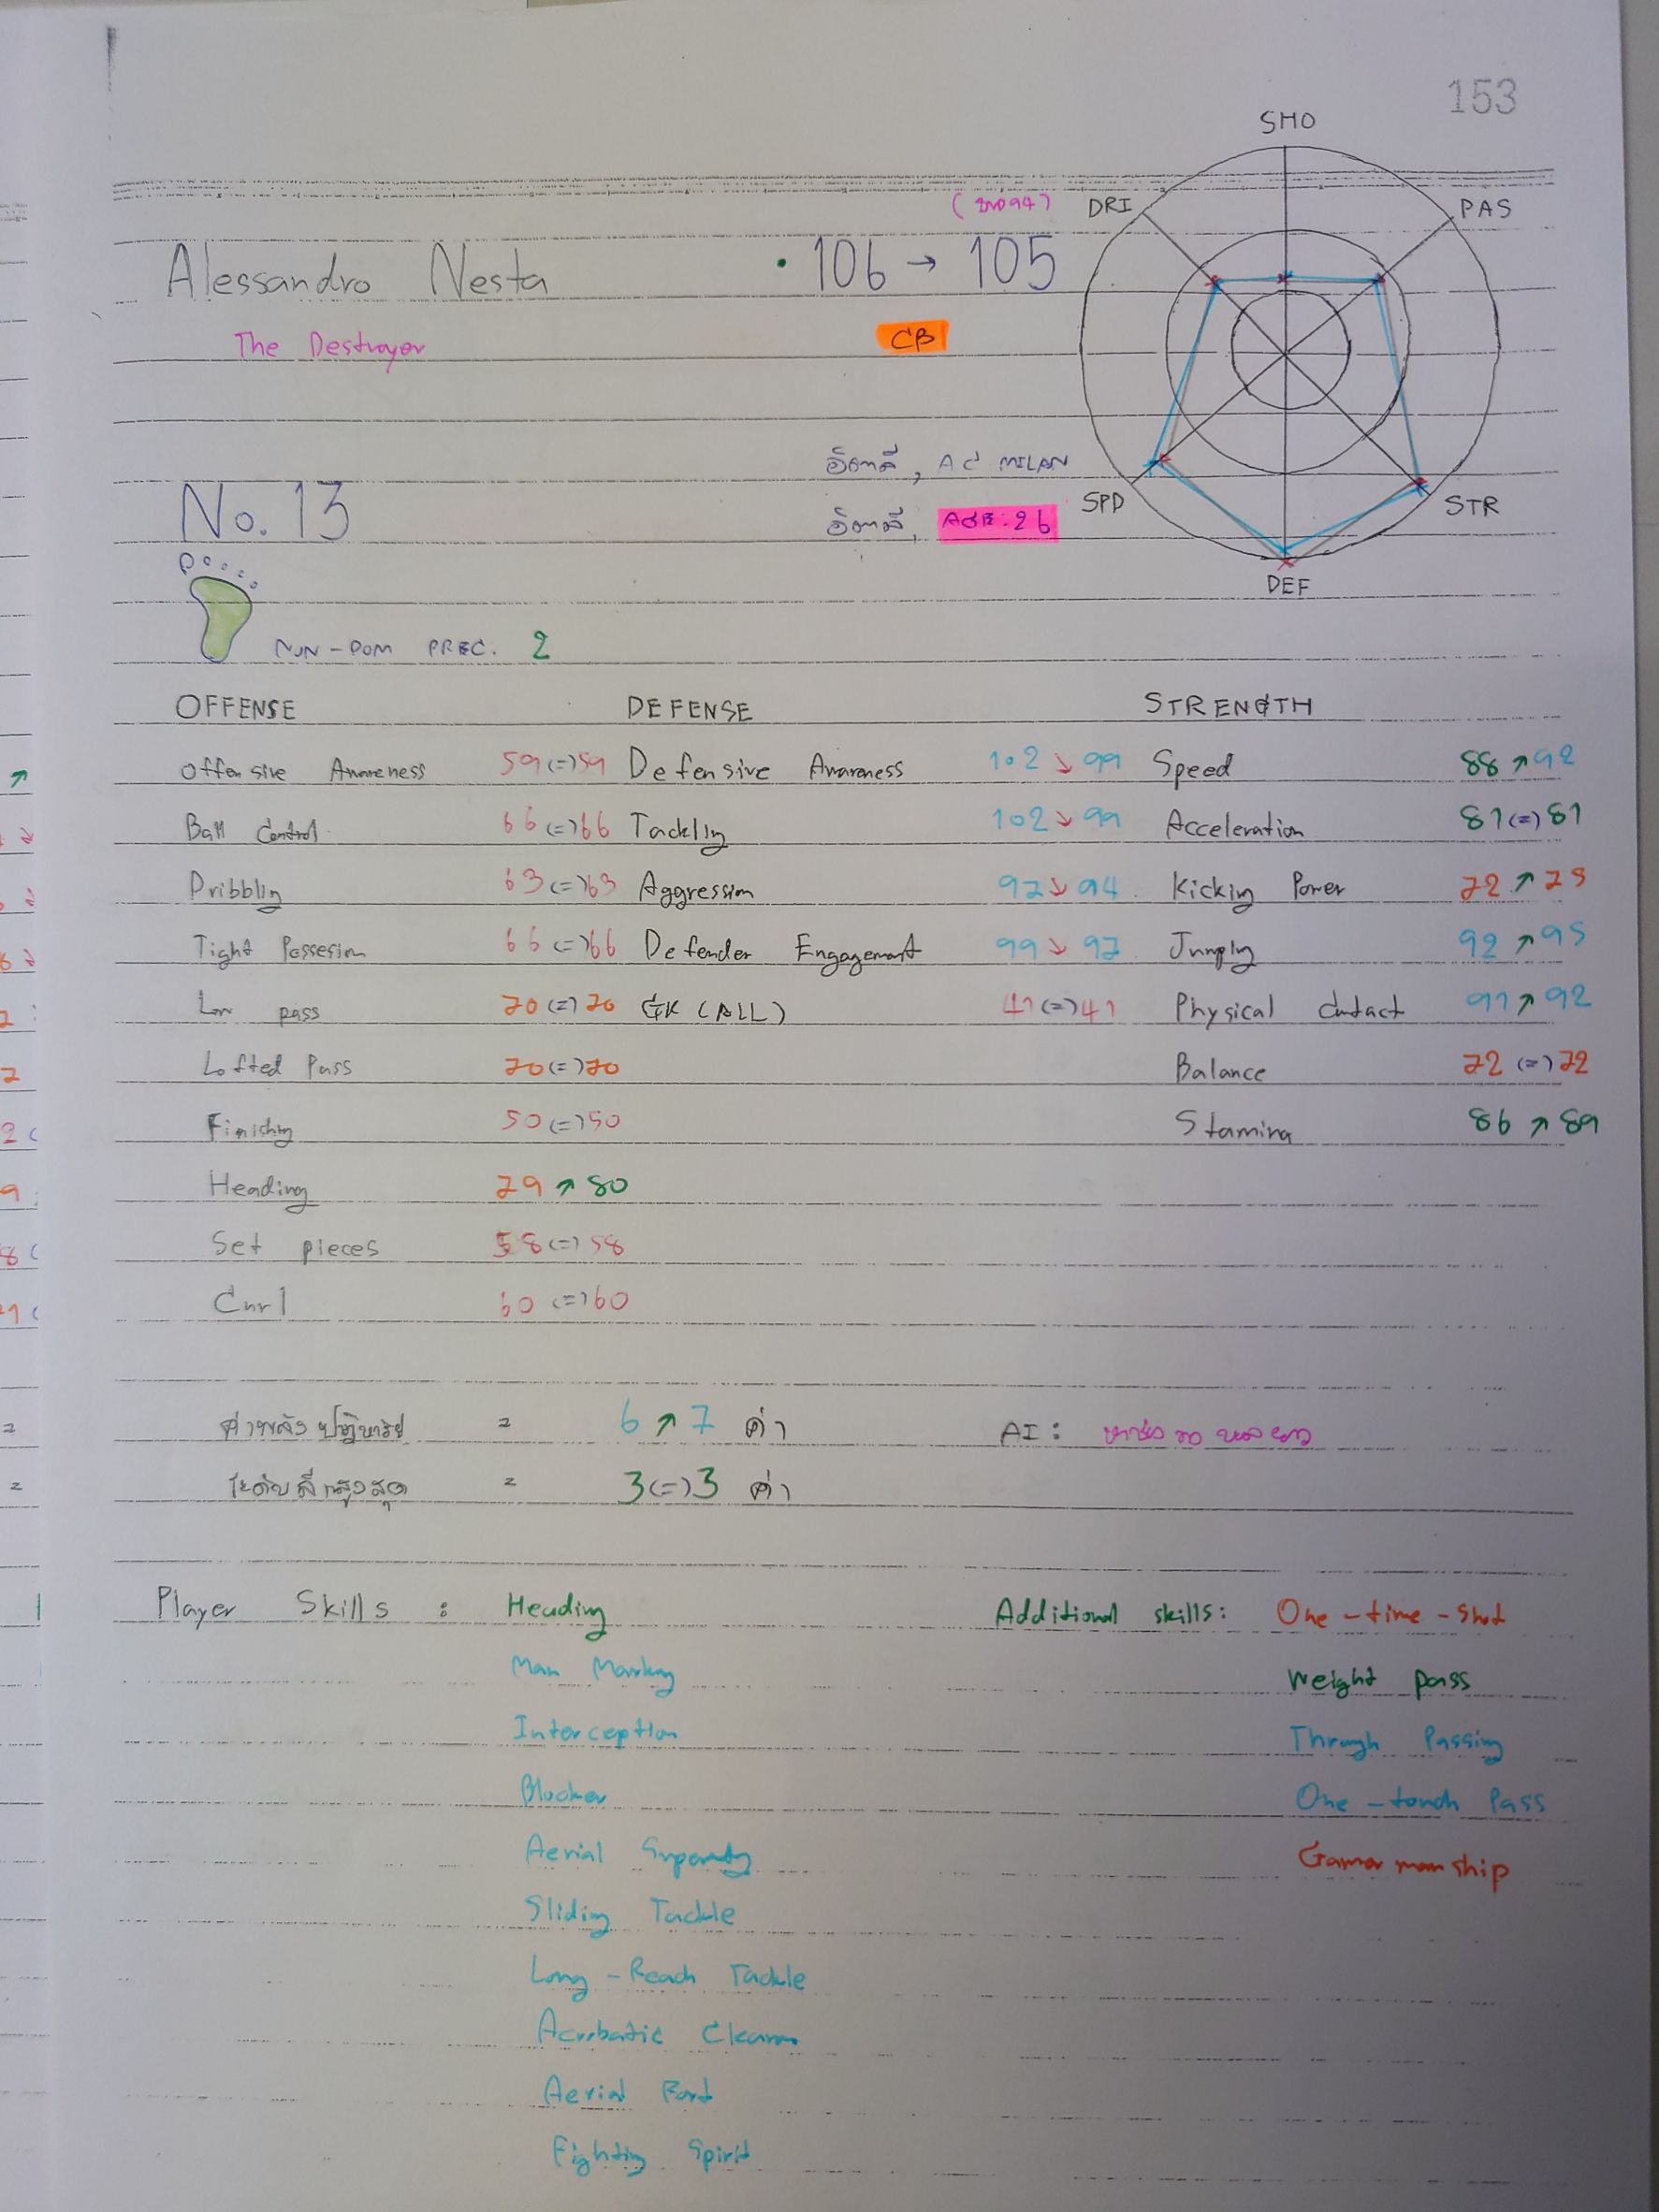 153
SHO
DRI PAS
Alessandro Nesta • 106 → 105
The Destroyer CB
อิตาลี, AC MILAN
No. 13 อิตาลี, AGE: 26
SPD STR
DEF
NON-DOM PREC. 2
OFFENSE DEFENSE STRENGTH
Offensive Awareness 59(=)59 Defensive Awareness 102↘99 Speed 88↗92
Ball Control 66(=)66 Tackling 102↘99 Acceleration 81(=)81
Dribbling 63(=)63 Aggression 97↘94 Kicking Power 72↗75
Tight Possesion 66(=)66 Defender Engagement 99↘97 Jumping 92↗95
Low pass 70(=)70 GK (ALL) 41(=)41 Physical Contact 91↗92
Lofted Pass 70(=)70 Balance 72(=)72
Finishing 50(=)50 Stamina 86↗89
Heading 79↗80
Set pieces 58(=)58
Curl 60(=)60
ค่าพลังปฏิหาริย์ = 6↗7 ค่า AI:
ระดับสีสูงสุด = 3(=)3 ค่า
Player Skills : Heading Additional skills: One-time-Shot
Man Marking Weight pass
Interception Through Passing
Blocker One-touch Pass
Aerial Gamesmanship
Sliding Tackle
Long-Reach Tackle
Acrobatic Clearance
Aerial Fort
Fighting Spirit